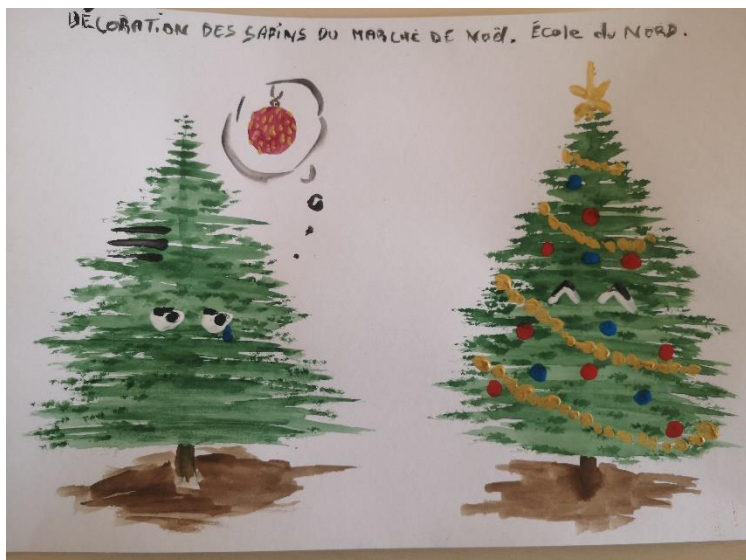 DÉCORATION DES SAPINS DU MARCHÉ DE NOËL. ÉCOLE DU NORD.